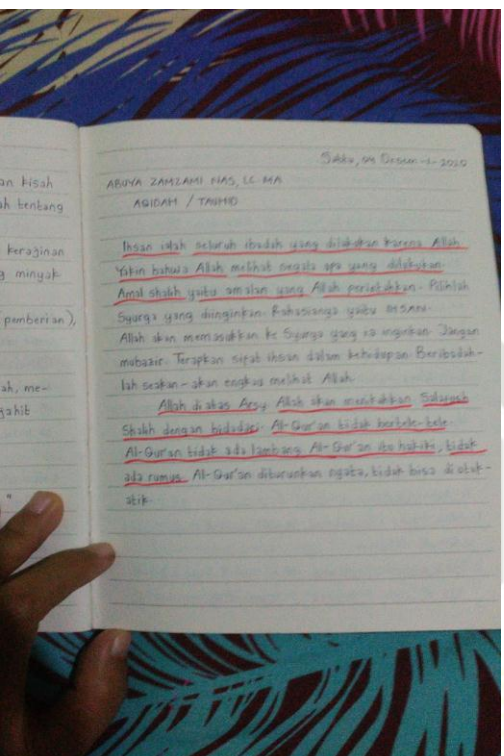 an kisah
ah tentang
kerajinan
g minyak
pemberian),
ah, me-
jahit
"
Sabtu, 2020
ABUYA ZAMZAMI NAS, LC MA
AQIDAH / TAUHID
Ihsan ialah seluruh ibadah yang dilakukan karena Allah
Yakin bahwa Allah melihat segala apa yang dilakukan.
Amal shalih yaitu amalan yang Allah perintahkan. Pilihlah
Syurga yang diinginkan. Rahasianya yaitu IHSAN.
Allah akan memasukkan ke Syurga yang ia inginkan. Jangan
mubazir. Terapkan sifat ihsan dalam kehidupan. Beribadah-
lah seakan-akan engkau melihat Allah.
Allah di atas Arsy, Allah akan menikahkan
Shalih dengan bidadari. Al-Qur'an tidak bertele-tele.
Al-Qur'an tidak ada lambang. Al-Qur'an itu hakiki, tidak
ada rumus. Al-Qur'an diturunkan nyata, tidak bisa di otak-
atik.